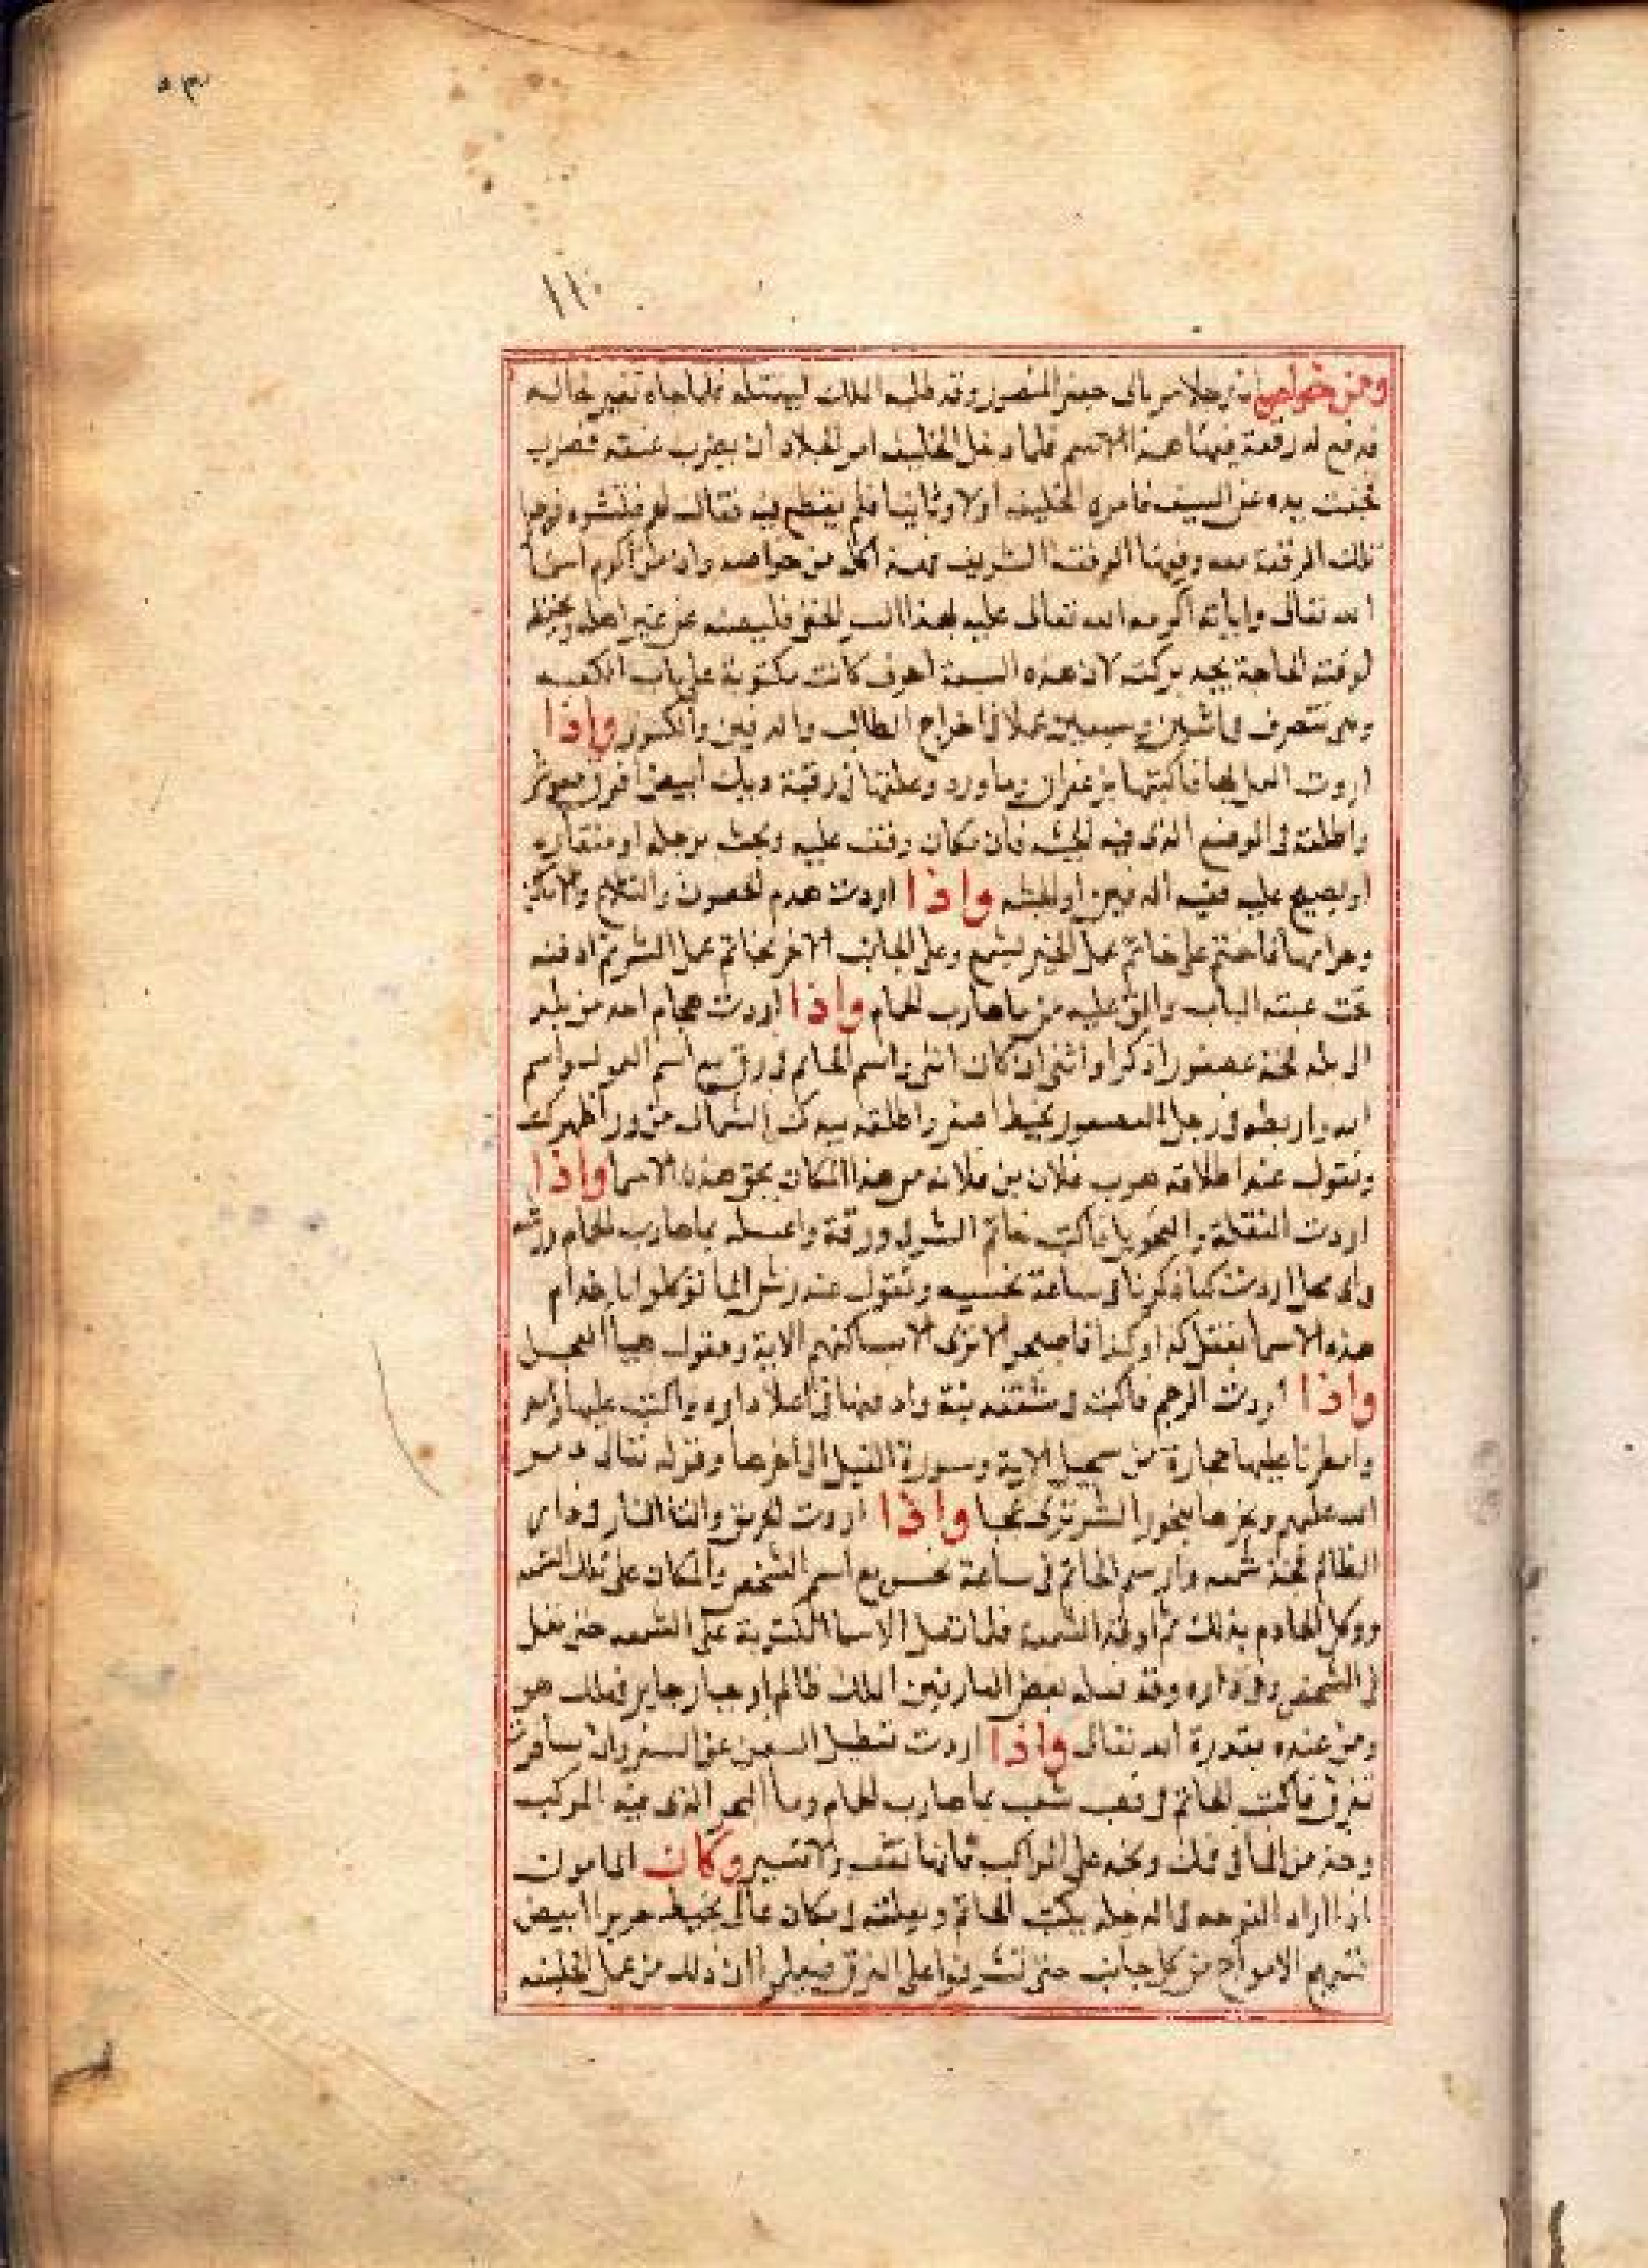 ٥٣
١١٠
ومن خواصهم ان رجلا مر بابى جعفر المنصور وقد طلبه الملك ليقتله فلما جاه تغير حاله
فدفع له رقعة فيها هذه الاسم فلما دخل الخليفه امر الجلاد ان يضرب عنقه فضرب
فجفت يده عن السيف فامره الخليفه اولا وثانيا فلم يقطع فيه فقال لهم فتشوه فوجدوا
تلك الرقعة معه وفيها الوفق الشريف فهذه اكل من خواصه وان من اكرم اسما
الله تعالى واياته اكرمه الله تعالى عليه بهذا السر الخفى فليصنه عن غير اهله ويحفظه
لوقت الحاجة يجد بركته لان هذه السبعة احرف كانت مكتوبة على باب الكعبه
وهى تتصرف فى اثنين وسبعين عملا فى اخراج المطالب والدفين والكنوز واذا
اردت العمل بها فاكتبها بزعفران وماورد وعلقها فى رقبة ديك ابيض افرق
واطلقه فى الموضع الذى فيه الخبيه فان مكان وقف عليه وبحث برجله او منقاره
او يصيح عليه ففيه الدفين او الخبيه واذا اردت هدم الحصون والقلاع
فاختم على خاتم عمل الخير بشمع وعلى الجانب الاخر بخاتم عمل الشر ثم ادفنه
تحت عتبة الباب والق عليه من ماصارب الحمام واذا اردت احد من بلد
الى بلد فخذ عصفورا ذكرا او انثى ان كان انثى وارسم الخاتم فى ورق مع اسم المعمول واسم
امه واربطه فى رجل العصفور بخيط اصفر واطلقه بيدك الشمال من ورا ظهرك
وتقول عند اطلاقه هرب فلان بن فلانه من هذا المكان بحق هذه الاسما واذا
اردت النقلة والتحويل فاكتب خاتم الشر فى ورقة واغسله بماصارب الحمام ورشه
فى اى محل اردت كما ذكرنا فى ساعة نحسيه وتقول عند رش الما توكلوا يا خدام
هذه الاسما بفعل كذا وكذا فاصبحوا لا ترى الا مساكنهم الاية وتقول هيا العجل
واذا اردت الرجم فاكتب فى شقفه نيه وادفنها فى اعلا داره واكتب عليها
وامطرنا عليها حجارة من سجيل الاية وسورة الفيل الى اخرها وقوله تعالى دمر
الله عليهم وبخرها ببخور الشر ترى عجبا واذا اردت الحريق والقا النار فى دار
الظالم فخذ شمعه وارسم الخاتم فى ساعة نحس مع اسم الشخص والمكان على تلك الشمعه
ووكل الخادم بذلك ثم اوقد الشمعه فلما تصل الاسما المكتوبة على الشمعه حتى تعمل
فى الشخص وفى داره وقد فعله بعض العارفين الملك ظالم او جبار جاير فهلك هو
ومن عنده بقدرة الله تعالى واذا اردت تعطيل السفين عن السفر وان سافرت
تغرق فاكتب الخاتم فى قعب شعب بماصارب الحمام وما البحر الذى فيه المركب
وخذ من الما فى فمك وبخه على المراكب فانها تقف ولا تسير وكان المامون
اذا اراد التوجه الى الدجله يكتب الخاتم ويعلقه فى مكان عالى بخيط حرير ابيض
فتهيج الامواج من كل جانب حتى تشرفوا على الغرق فيعلموا ان ذلك من عمل الخليفه